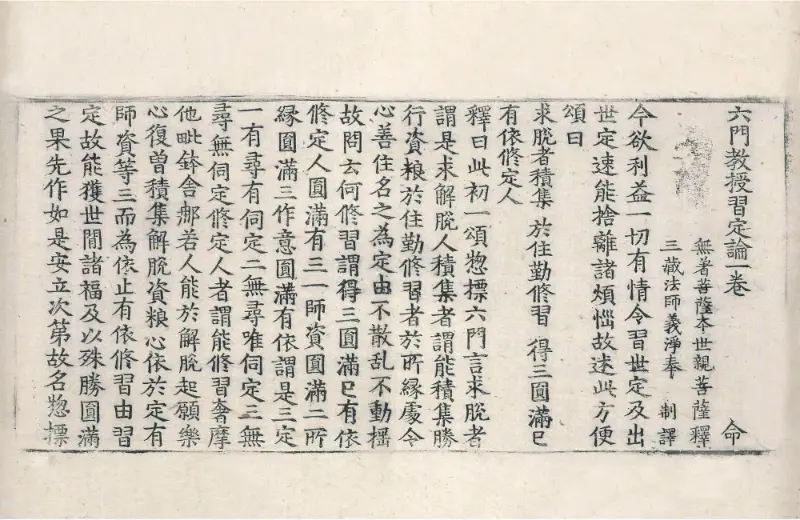 六門教授習定論一卷 命
無著菩薩本世親菩薩釋
三藏法師義淨奉 制譯
今欲利益一切有情令習世定及出
世定速能捨離諸煩惱故述此方便
頌曰
求脫者積集 於住勤修習 得三圓滿已
有依修定人
釋曰此初一頌惣摽六門言求脫者
謂是求解脫人積集者謂能積集勝
行資粮於住勤修習者於所緣處令
心善住名之為定由不散乱不動摇
故問云何修習謂得三圓滿已有依
修定人圓滿有三一師資圓滿二所
緣圓滿三作意圓滿有依謂是三定
一有尋有伺定二無尋唯伺定三無
尋無伺定修定人者謂能修習奢摩
他毗鉢舍那若人能於解脫起願樂
心復曾積集解脫資粮心依於定有
師資等三而為依止有依修習由習
定故能獲世間諸福及以殊勝圓滿
之果先作如是安立次第故名惣摽